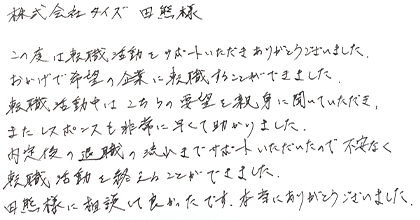 株式会社タイズ 田熊様
この度は転職活動をサポートいただきありがとうございました。
おかげで希望の企業に転職することができました。
転職活動中はこちらの要望を親身に聞いていただき、
またレスポンスも非常に早くて助かりました。
内定後の退職の流れまでサポートいただいたので不安なく
転職活動を終えることができました。
田熊様に相談して良かったです。本当にありがとうございました。